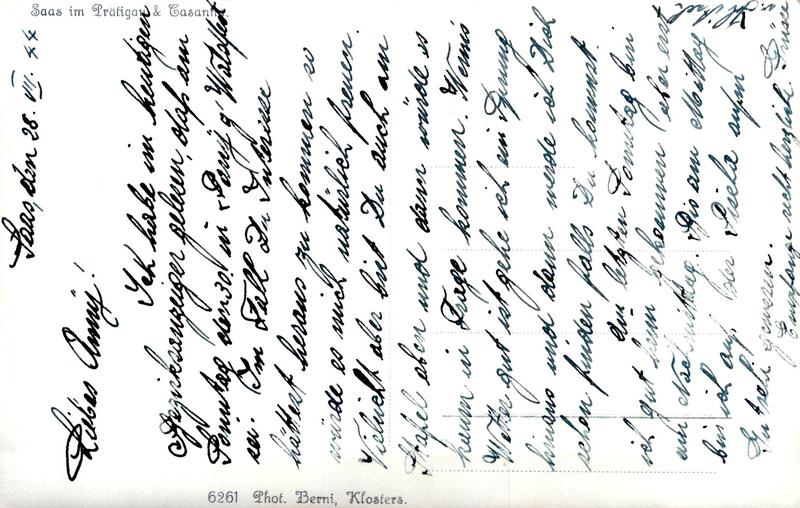 Saas im Prätigau & Casanna.
Saas, den 28. VII. 44
Liebes Anny!
Ich habe im heutigen
Bezirksanzeiger gelesen, daß am
Sonntag den 30. in
sei. Im Fall Du Interesse
hättest heraus zu kommen so
würde es mich natürlich freuen.
Vieleicht aber bist Du auch am
eben und dann würde es
kaum in Frage kommen. Wenns
Wetter gut ist gehe ich ein Sprung
hinaus und dann werde ich Dich
schon finden falls Du kommst.
Am letzten Sonntag bin
ich gut heim gekommen aber erst
am Nachmittag. Bis am Mittag
bin ich auf der aufm
gewesen.
Empfange recht herzliche Grüsse
6261 Phot. Berni, Klosters.